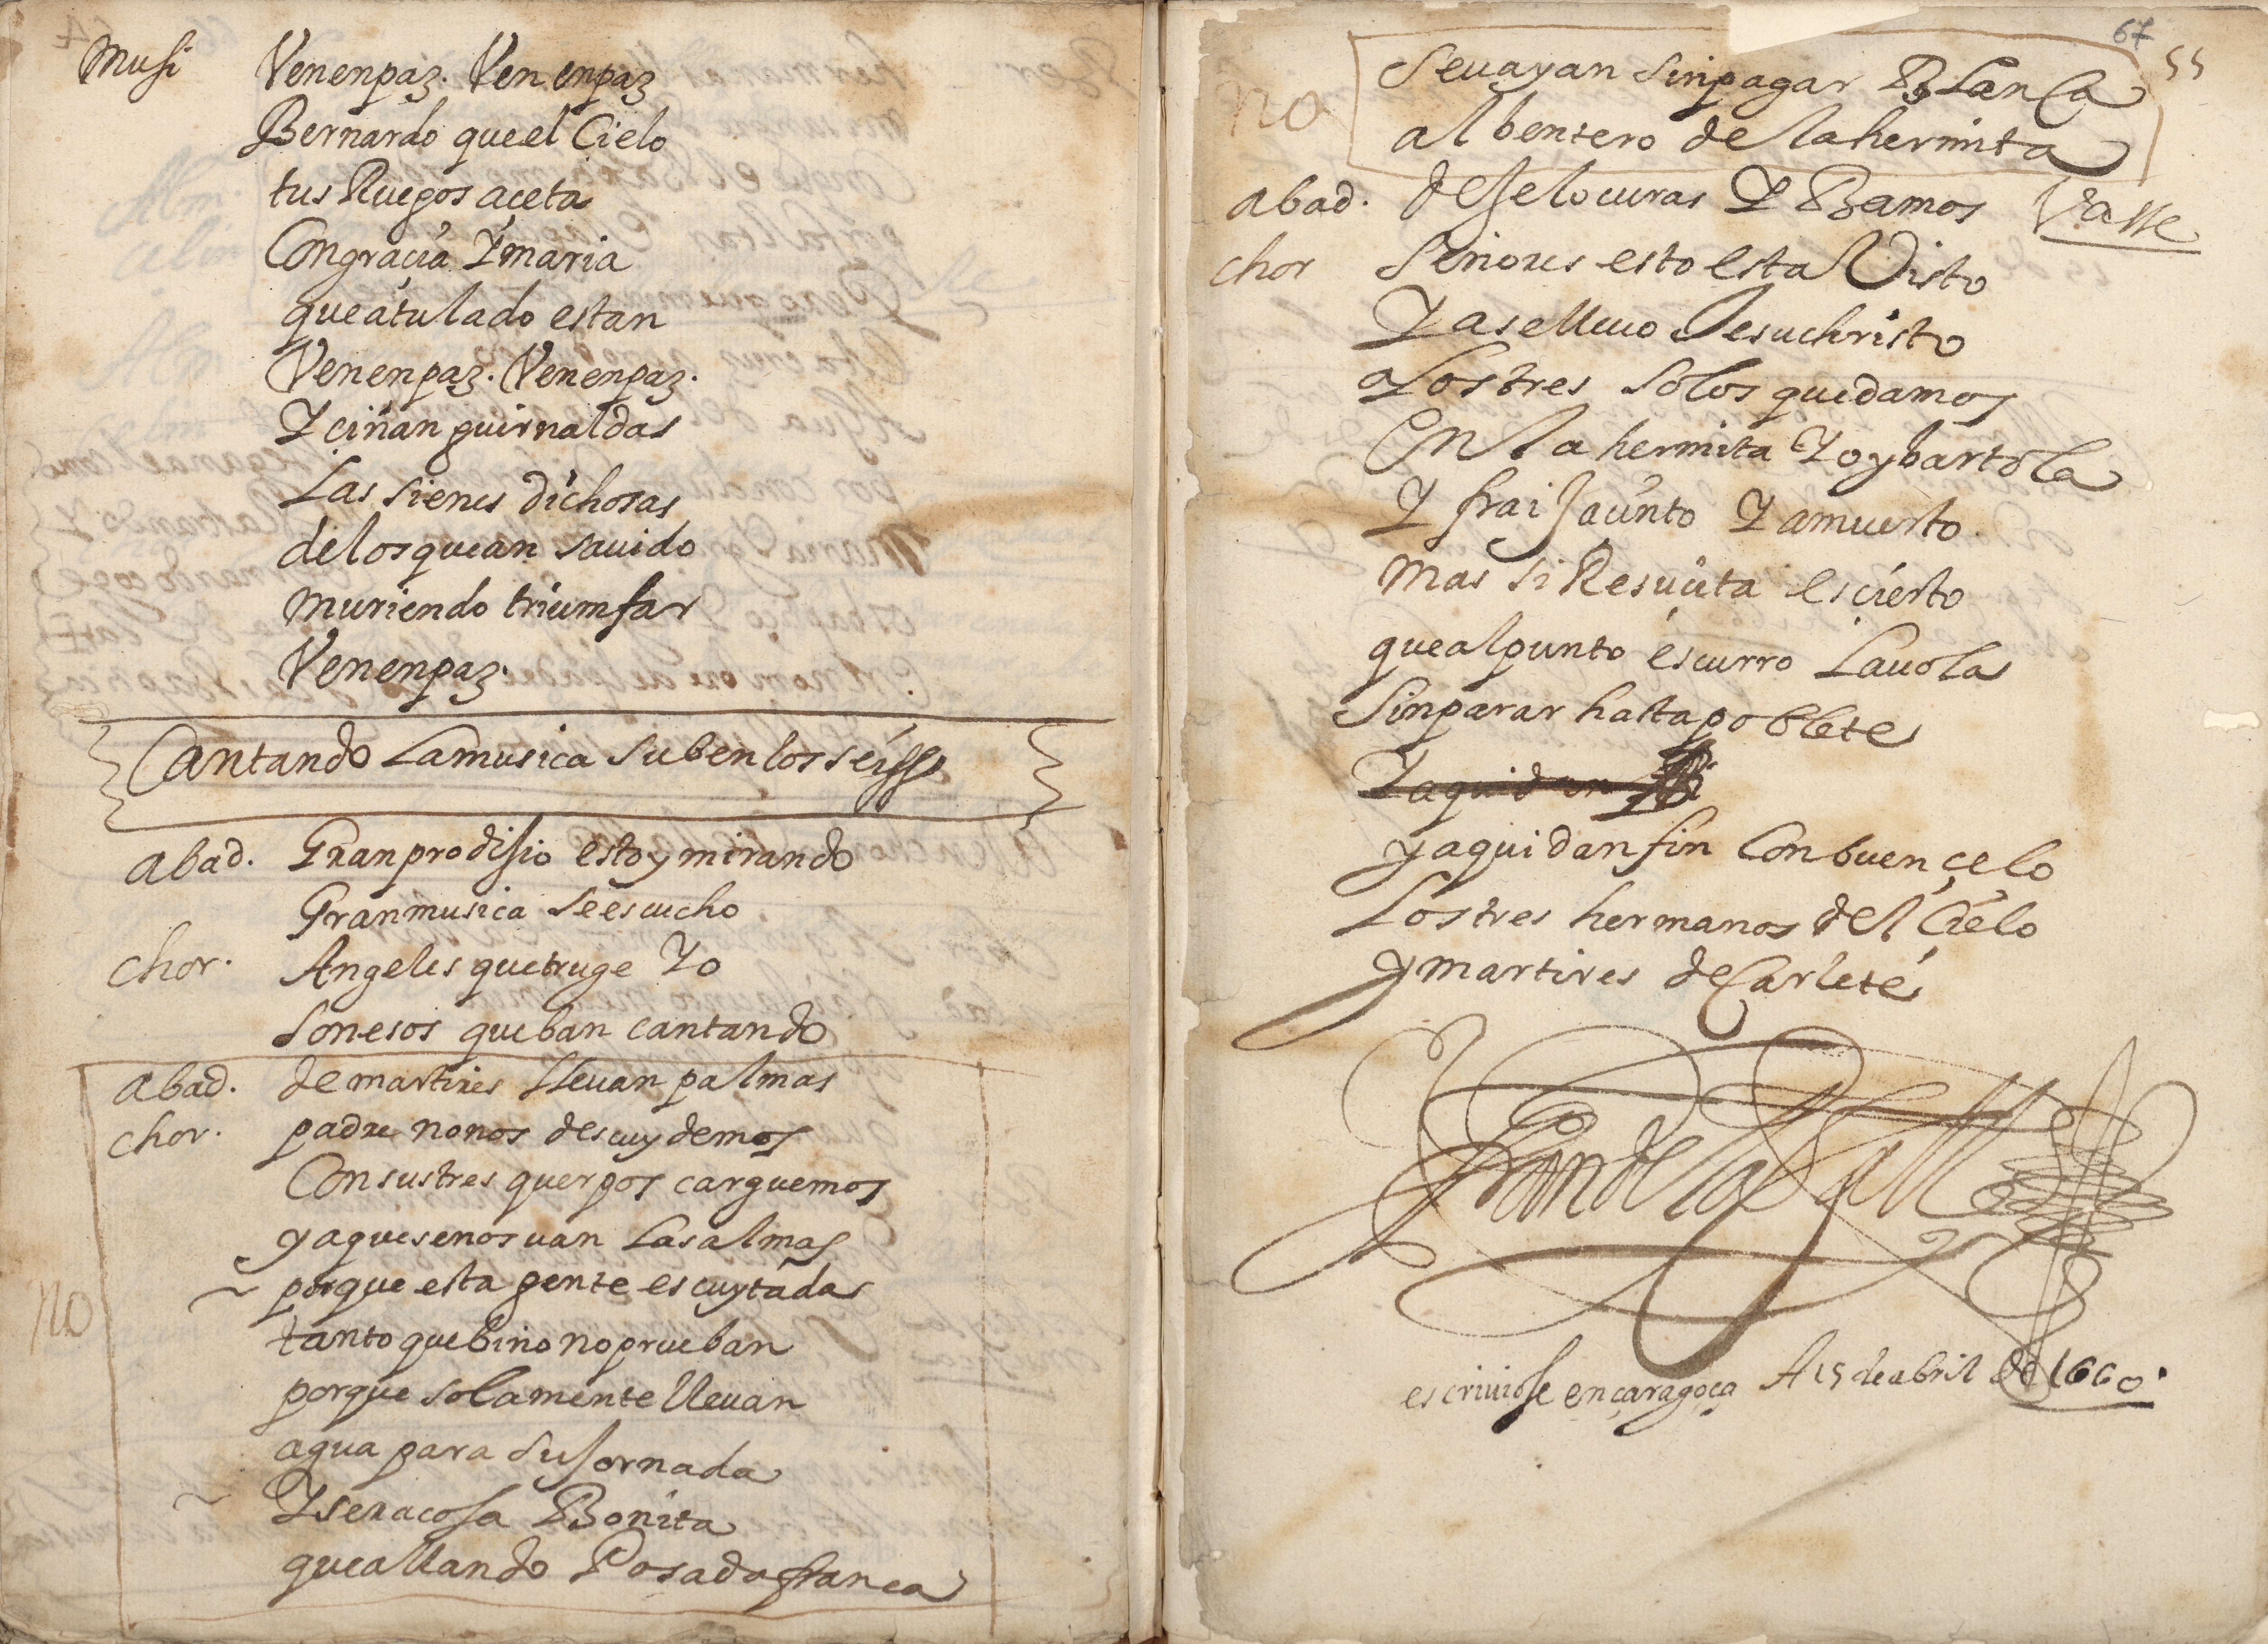 Musi Venenpaz. Ven enpaz
Bernardo que el Cielo
tus Ruegos açeta
Congraçia Y maria
que atulado estan
Venenpaz. Venenpaz.
Y ciñan guirnaldas
Las sienes dichosas
de los quean sauido
muriendo triumfar
Venenpaz.
Cantando La musica suben los
abad. Gran prodijio estoy mirando
Gran musica se escucho
chor. Angeles que truge Yo
son esos que ban cantando
abad. de martires lleuan palmas
chor. padre no nos descuydemos
Con sus tres querpos carguemos
ya que se nos uan Las almas
porque esta gente es cuytada
tanto que bino no prueban
porque solamente lleuan
agua para su Jornada
Y sera cosa Bonita
que allando Posada franca
no
67
55
Se uayan sin pagar Blanca
al bentero de la hermita
no
abad. deje locuras Y Bamos Vasse
chor Señores esto esta Visto
Y a se lleuo Jesuchristo
Los tres solos quedamos
En la hermita Yo y bartola
Y frai Jacinto Y a muerto
mas si Resuçita es cierto
que al punto escurro La uola
Sin parar hasta poblete
Y aqui dan
y aqui dan fin Con buen çelo
Los tres hermanos del Cielo
y martires de Carlete
escriuiose en çaragoça A 15 de abril de 1660.